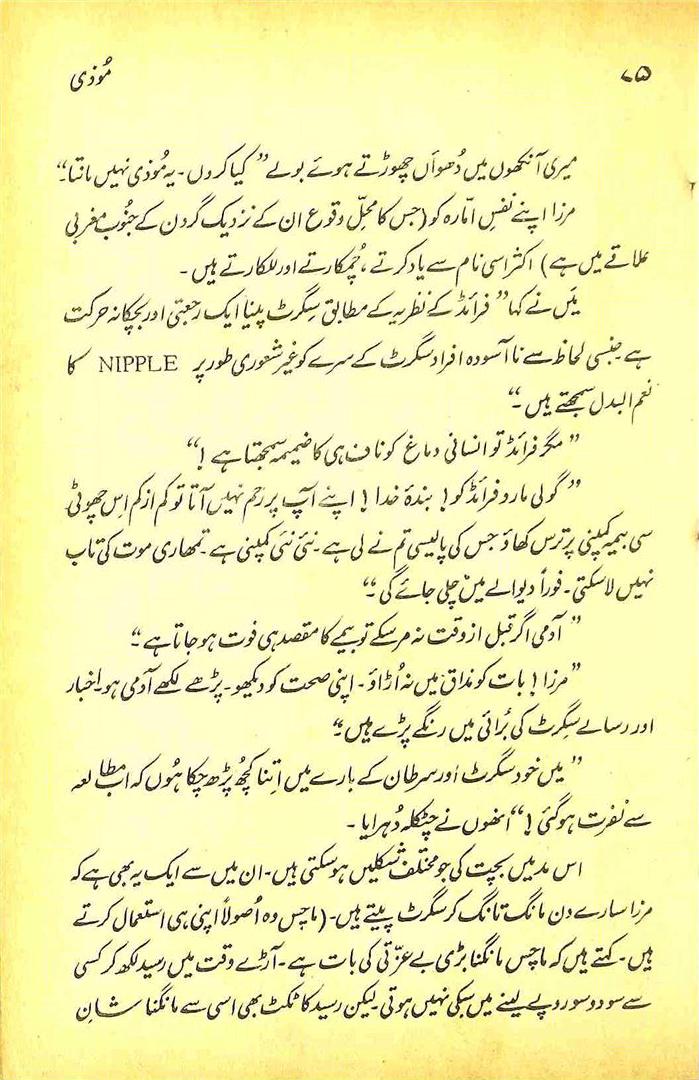 ۷۵ مُوذی
میری آنکھوں میں دُھواں چھوڑتے ہوئے بولے ” کیا کروں۔ یہ مُوذی نہیں مانتا۔“
مرزا اپنے نفسِ امّارہ کو (جس کا محلِّ وقوع ان کے نزدیک گردن کے جنُوب مغربی
علاقے میں ہے) اکثر اسی نام سے یاد کرتے ، چُمکارتے اور للکارتے ہیں۔
میَں نے کہا ” فرائڈ کے نظریہ کے مطابق سِگرٹ پینا ایک رجعتی اور بچکانہ حرکت
ہے۔ جنسی لحاظ سے ناآسودہ افراد سگرٹ کے سرے کو غیر شعوری طور پر NIPPLE کا
نعم البدل سمجھتے ہیں۔“
” مگر فرائڈ تو انسانی دماغ کو ناف ہی کا ضمیمہ سمجھتا ہے !“
” گولی مارو فرائڈ کو ! بندۂ خدا ! اپنے آپ پر رحم نہیں آتا تو کم از کم اِس چھوٹی
سی بیمہ کمپنی پر ترس کھاؤ جس کی پالیسی تم نے لی ہے۔ نئی نئی کمپنی ہے۔ تمھاری موت کی تاب
نہیں لا سکتی۔ فوراً دیوالے میں چلی جائے گی۔“
” آدمی اگر قبل از وقت نہ مر سکے تو بیمے کا مقصد ہی فوت ہو جاتا ہے۔“
” مرزا ! بات کو مذاق میں نہ اُڑاؤ۔ اپنی صحت کو دیکھو۔ پڑھے لکھے آدمی ہو۔ اخبار
اور رسالے سِگرٹ کی بُرائی میں رنگے پڑے ہیں۔“
” میں خود سگرٹ اور سرطان کے بارے میں اِتنا کچھُ پڑھ چکا ہُوں کہ اب مطالعہ
سے نفرت ہو گئی !“ انھوں نے چٹکلہ دُہرایا۔
اس مد میں بچت کی جو مختلف شکلیں ہو سکتی ہیں۔ ان میں سے ایک یہ بھی ہے کہ
مرزا سارے دن مانگ تانگ کر سگرٹ پیتے ہیں۔ (ماچس وہ اُصولاً اپنی ہی استعمال کرتے
ہیں۔ کہتے ہیں کہ ماچس مانگنا بڑی بے عزّتی کی بات ہے۔ آڑے وقت میں رسید لکھ کر کسی
سے سو دو سو روپے لینے میں سبکی نہیں ہوتی۔ لیکن رسید کا ٹکٹ بھی اسی سے مانگنا شانِ